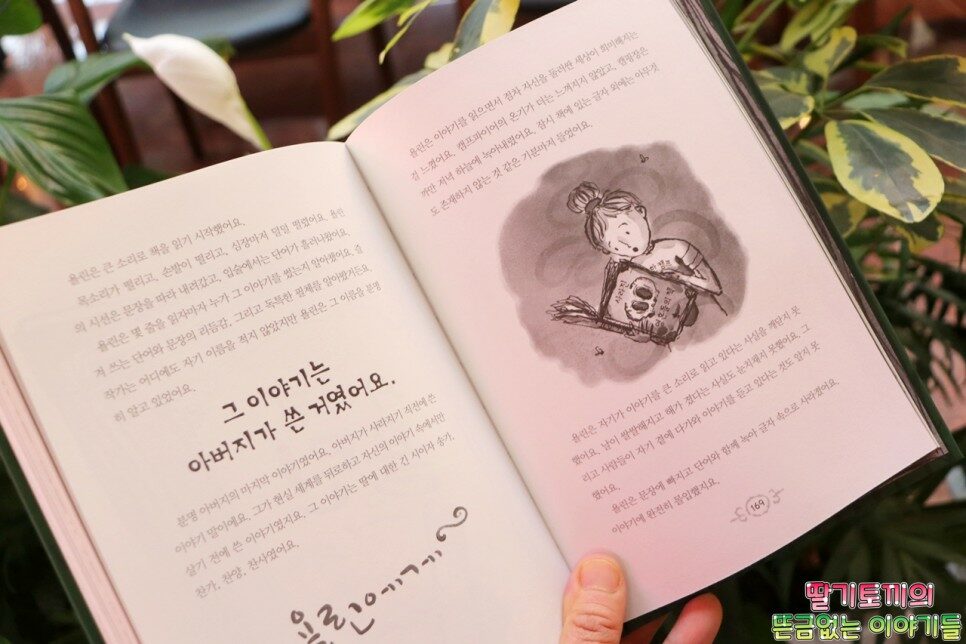 율린은 큰 소리로 책을 읽기 시작했어요.
목소리가 떨리고, 손발이 떨리고, 심장마저 덜덜 떨렸어요. 율린
의 시선은 문장을 따라 내려갔고, 입술에서는 단어가 흘러나왔어요.
율린은 몇 줄을 읽자마자 누가 그 이야기를 썼는지 알아챘어요. 즐
겨 쓰는 단어와 문장의 리듬감, 그리고 독특한 필체를 알아봤거든요.
작가는 어디에도 자기 이름을 적지 않았지만 율린은 그 이름을 분명
히 알고 있었어요.
그 이야기는
아버지가 쓴 거였어요.
분명 아버지의 마지막 이야기였어요. 아버지가 사라지기 직전에 쓴
이야기 말이에요. 그가 현실 세계를 뒤로하고 자신의 이야기 속에서만
살기 전에 쓴 이야기였지요. 그 이야기는 딸에 대한 긴 서이자 송가,
찬가, 찬양, 찬사였어요.
율린에게
율린은 이야기를 읽으면서 점차 자신을 둘러싼 세상이 희미해지는
걸 느꼈어요. 캠프파이어의 온기가 더는 느껴지지 않았고, 캠핑장은
까만 저녁 하늘에 녹아내렸어요. 잠시 책에 있는 글자 외에는 아무것
도 존재하지 않는 것 같은 기분마저 들었어요.
사라진
율린은 자기가 이야기를 큰 소리로 읽고 있다는 사실을 깨닫지 못
했어요. 날이 쌀쌀해지고 해가 졌다는 사실도 눈치채지 못했어요. 그
리고 사람들이 자기 곁에 다가와 이야기를 듣고 있다는 것도 알지 못
했어요.
율린은 문장에 빠지고 단어와 함께 녹아 글자 속으로 사라졌어요.
이야기에 완전히 몰입했지요.
169
딸기토끼의
뜬금없는 이야기들